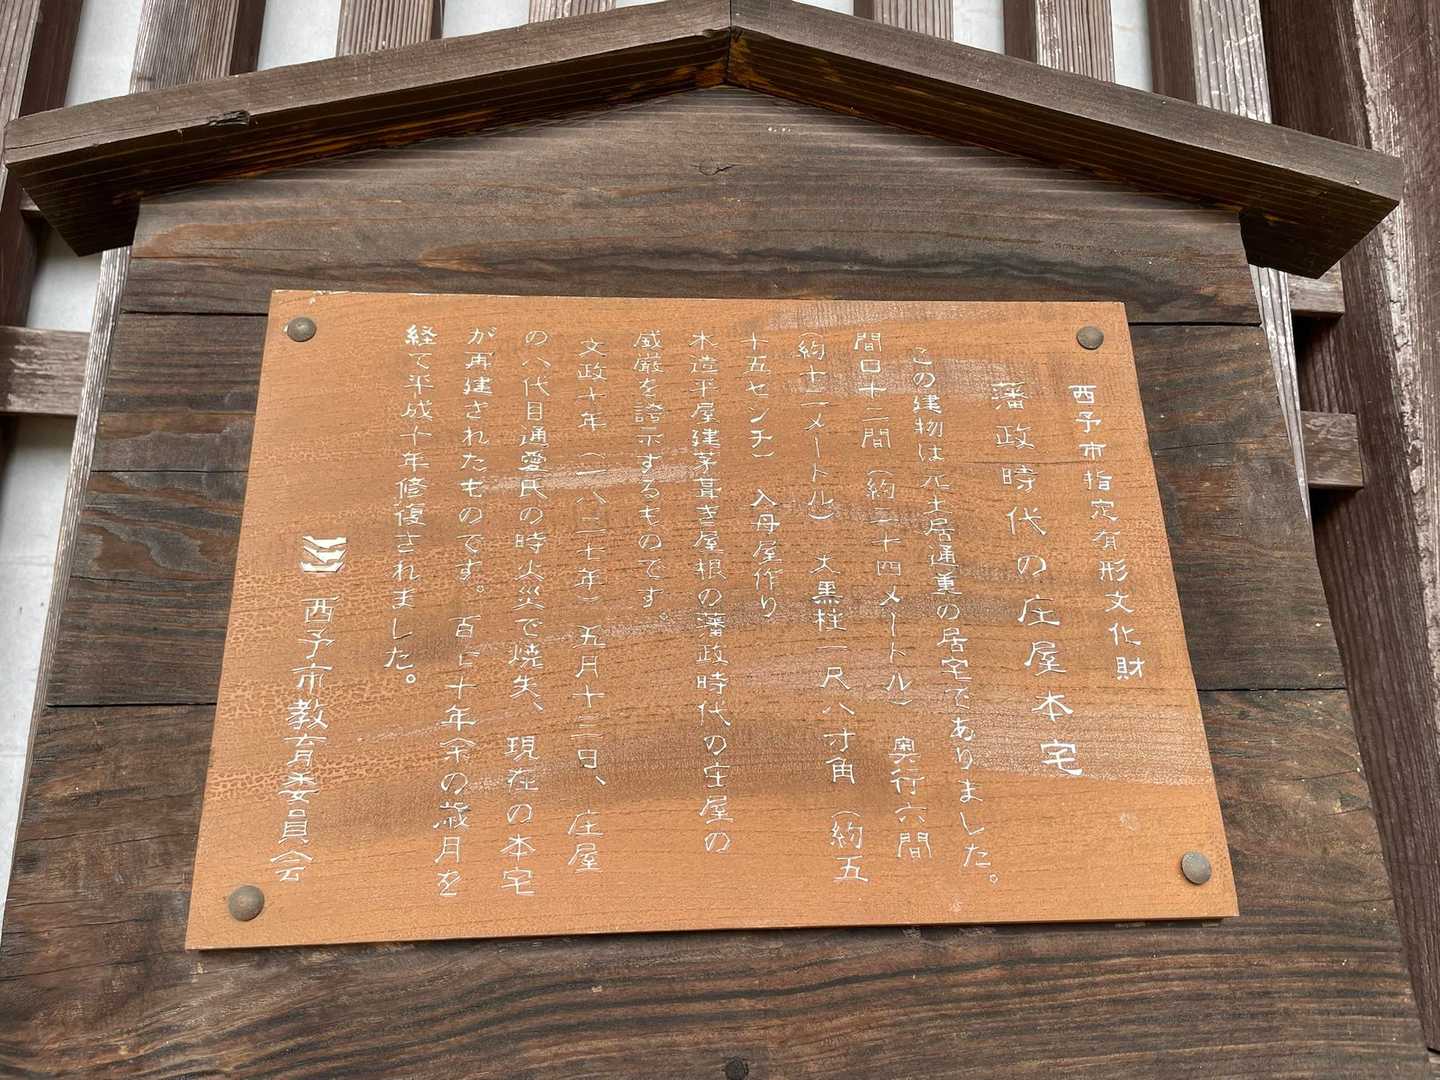 西予市指定有形文化財
藩政時代の庄屋本宅
この建物は元土居通重の居宅でありました。
間口十二間（約二十四メートル）奥行六間
（約十二メートル）大黒柱一尺八寸角（約五
十五センチ）入母屋作り
木造平屋建茅葺き屋根の藩政時代の庄屋の
威厳を誇示するものです。
文政十年（一八二七年）五月十三日、庄屋
の八代目通愛氏の時火災で焼失、現在の本宅
が再建されたものです。百七十年余の歳月を
経て平成十年修復されました。
西予市教育委員会